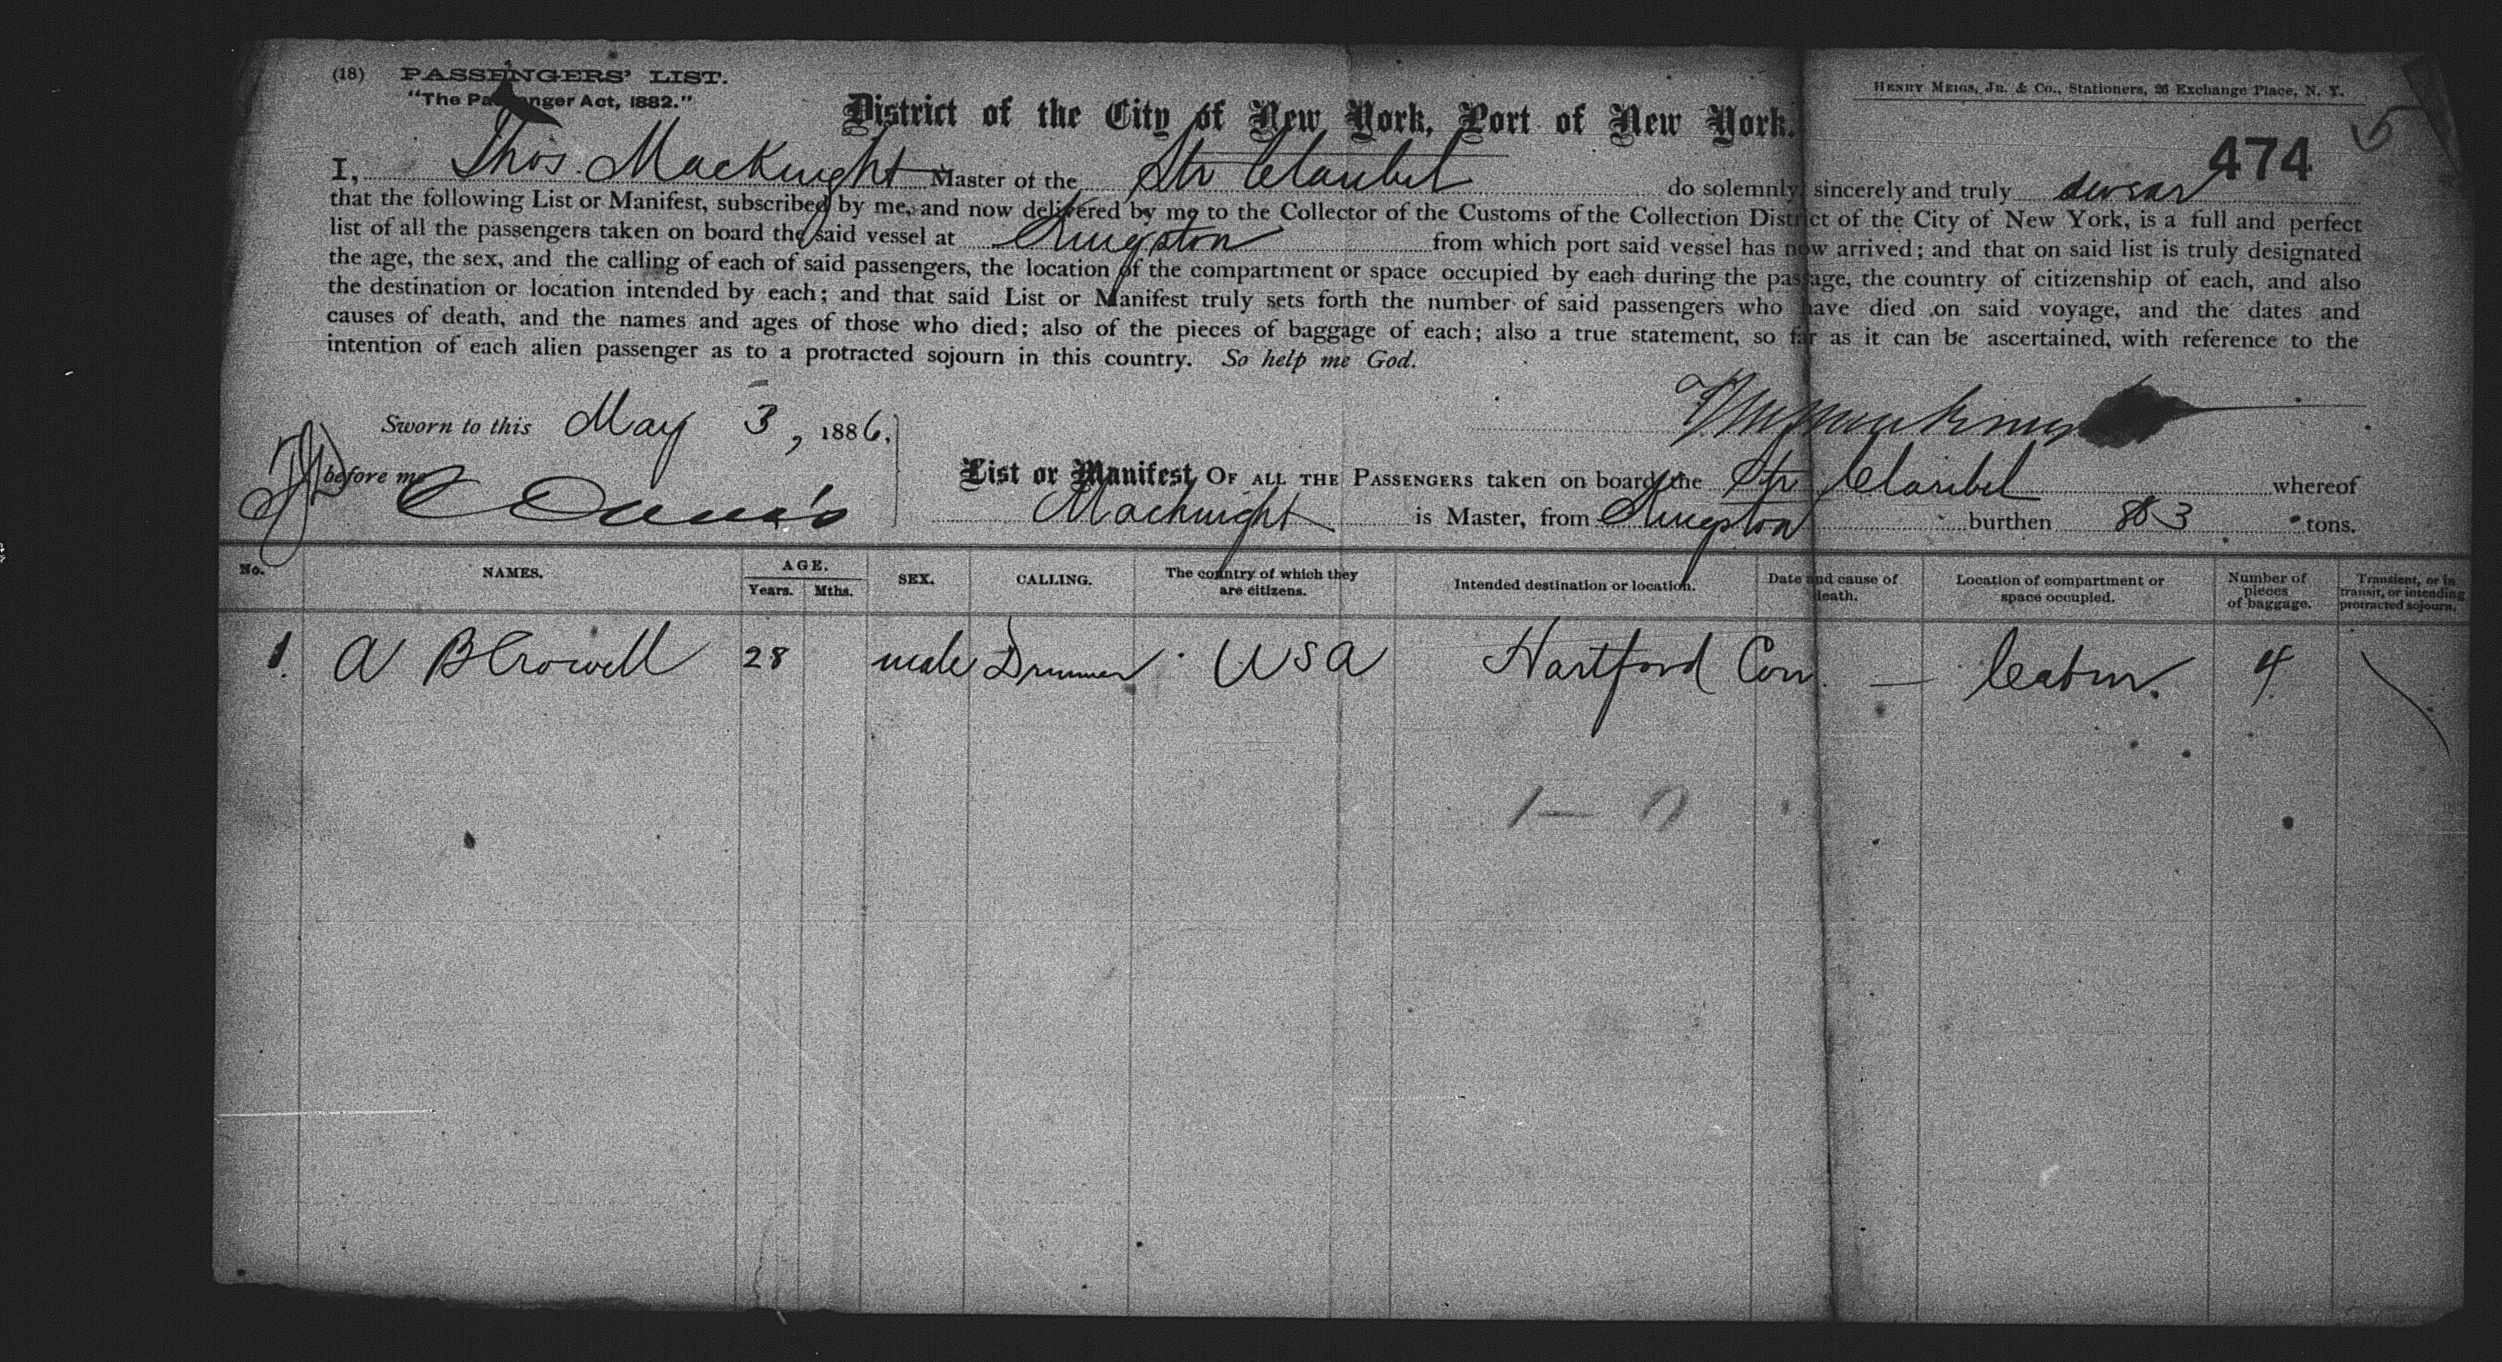 (18) PASSENGERS' LIST.
"The Passenger Act, 1882."
HENRY MEIGS, JR. & CO., Stationers, 26 Exchange Place, N. Y.
District of the City of New York, Port of New York.
5
474
I, Thos. Macknight Master of the Str Claribel do solemnly, sincerely and truly swear
that the following List or Manifest, subscribed by me, and now delivered by me to the Collector of the Customs of the Collection District of the City of New York, is a full and perfect
list of all the passengers taken on board the said vessel at Kingston from which port said vessel has now arrived; and that on said list is truly designated
the age, the sex, and the calling of each of said passengers, the location of the compartment or space occupied by each during the passage, the country of citizenship of each, and also
the destination or location intended by each; and that said List or Manifest truly sets forth the number of said passengers who have died on said voyage, and the dates and
causes of death, and the names and ages of those who died; also of the pieces of baggage of each; also a true statement, so far as it can be ascertained, with reference to the
intention of each alien passenger as to a protracted sojourn in this country. So help me God.
Sworn to this May 3, 1886,
before me
List or Manifest OF ALL THE PASSENGERS taken on board the Str Claribel whereof
Macknight is Master, from Kingston burthen 863 tons.
No. NAMES. AGE. Years. Mths. SEX. CALLING. The country of which they are citizens. Intended destination or location. Date and cause of death. Location of compartment or space occupied. Number of pieces of baggage. Transient, or in transit, or intending protracted sojourn.
1. A B Crowell 28 male Drummer USA Hartford Con. — Cabin. 4
1 — 0